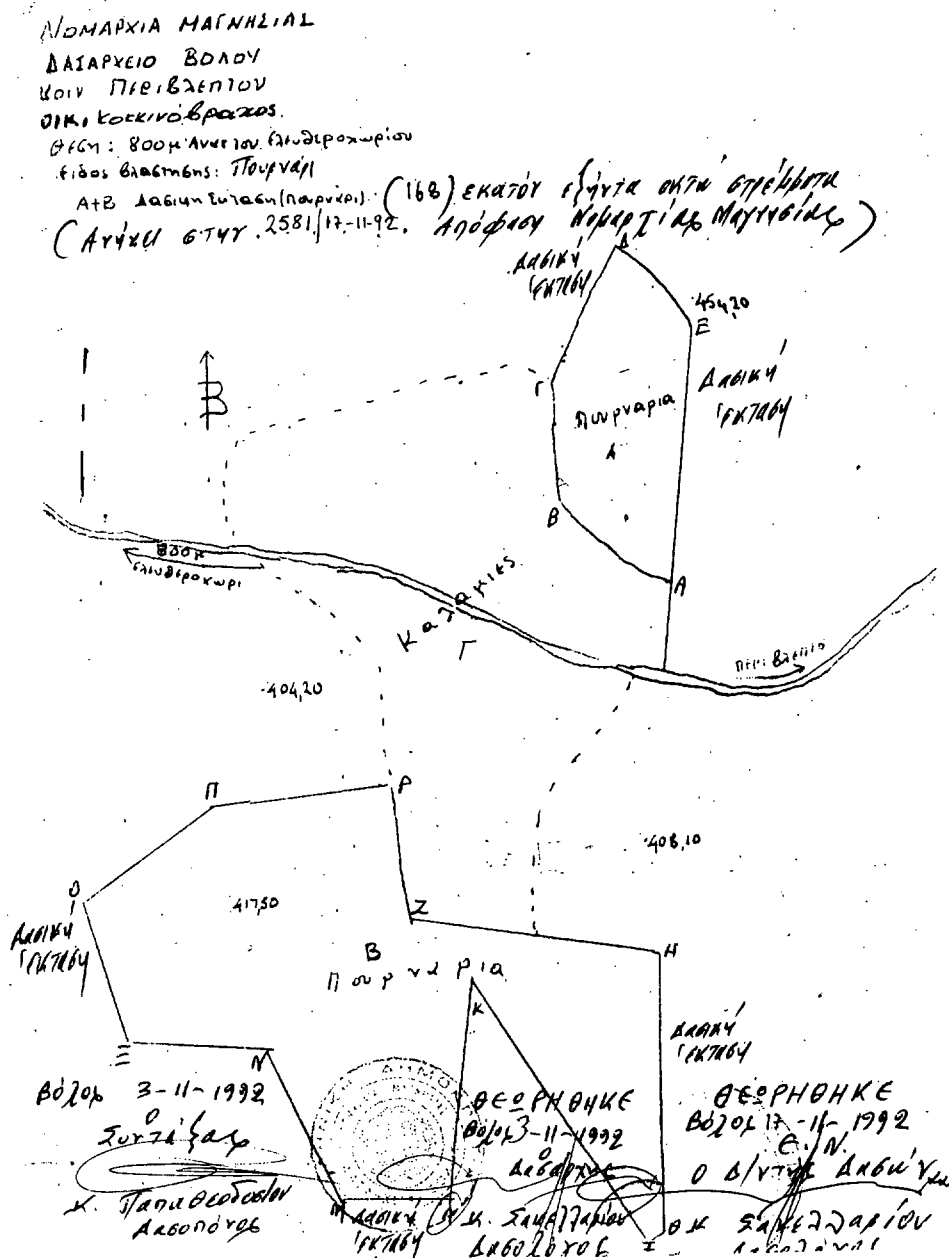 ΝΟΜΑΡΧΙΑ ΜΑΓΝΗΣΙΑΣ
ΔΑΣΑΡΧΕΙΟ ΒΟΛΟΥ
Κοιν Περιβλεπτου
ΟΙΚ. Κοκκινόβραχος.
Θέση: 800μ Ανατ του Ελευθεροχωρίου
Είδος βλαστησης: Πουρνάρι
Α+Β Δασικη Έκταση (πουρνάρι). (168) εκατόν εξήντα οκτώ στρέμματα
(Ανήκει στην .2581/17-11-92. Απόφαση Νομαρχίας Μαγνησίας)
Δασική Έκταση
Δ
454,20
Ε
Γ
Β
Δασική Έκταση
Πουρνάρια
Α
Β
Α
800μ
Ελευθεροχωρι
Καλακιες
Γ
Περιβλεπτο
404,20
Π
Ρ
408,10
Ο
417,50
Ζ
Η
Δασική Έκταση
Β
Πουρνάρια
Κ
Δασική Έκταση
Ξ
Ν
Βόλος 3-11-1992
Ο
Συντάξας
Κ. Παπαθεοδοσίου
Δασοπόνος
Μ
Δασική Έκταση
ΘΕΩΡΗΘΗΚΕ
Βόλος 3-11-1992
Ο
Δασάρχης
Κ. Σακελλαρίου
Δασολόγος
Ι
Θ
ΘΕΩΡΗΘΗΚΕ
Βόλος 17-11-1992
Ε.Ν.
Ο Δ/ντης Δασών
Κ Σακελλαρίου
Δασολόγος